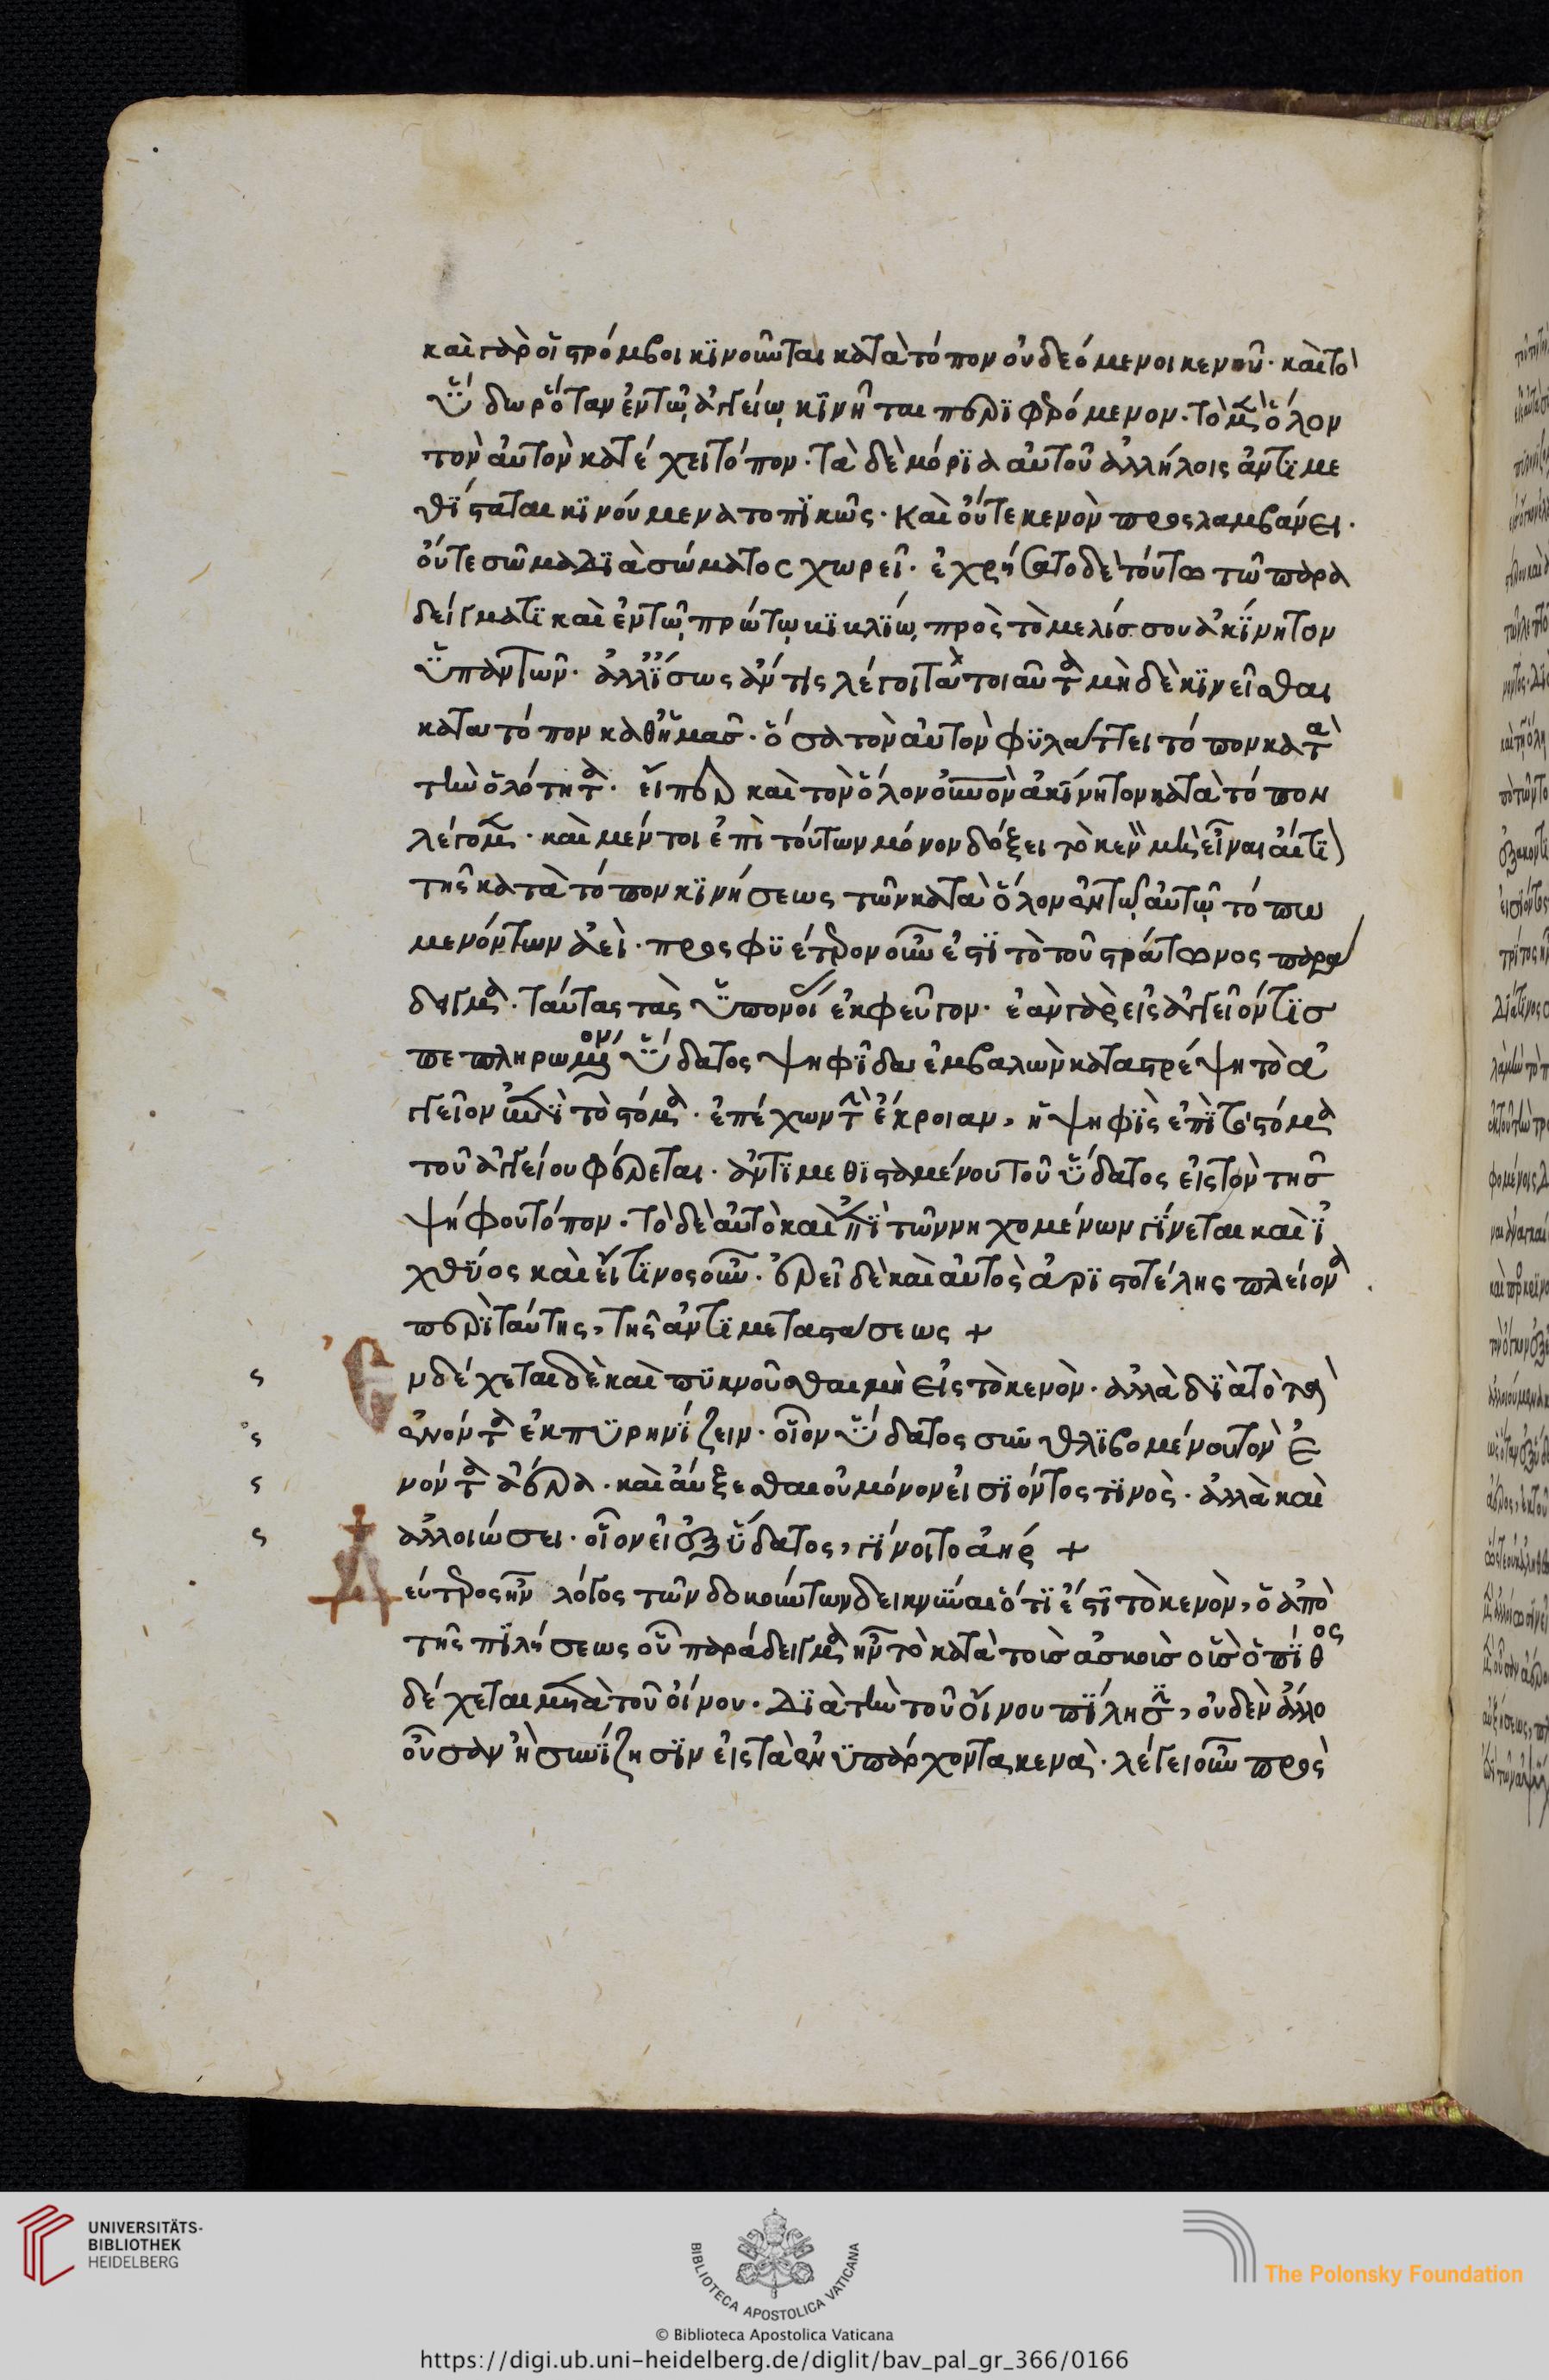 καὶ γὰρ οἱ στρόμβοι κινοῦνται κατὰ τόπον οὐ δεόμενοι κενοῦ· καὶ τὸ
ὕδωρ ὅταν ἐν τῷ ἀγγείῳ κινῆται περιφερόμενον· τὸ μὲν ὅλον
τὸν αὐτὸν κατέχει τόπον· τὰ δὲ μόρια αὐτοῦ ἀλλήλοις ἀντιμε
θίσταται κινούμενα τοπικῶς· καὶ οὔτε κενὸν προσλαμβάνει·
οὔτε σῶμα διὰ σώματος χωρεῖ· ἐχρήσατο δὲ τούτω τῶ παρα
δείγματι καὶ ἐν τῷ πρώτῳ βιβλίῳ πρὸς τὸ μελίσσου ἀκίνητον
ὑπαντῶν· ἀλλ' ἴσως ἄν τις λέγοι τὰ τοιαῦτα μὴ δὲ κινεῖσθαι
κατα τόπον καθ' ἡμᾶσ· ὅσα τὸν αὐτὸν φυλάττει τόπον κατὰ
τὴν ὁλότητα· εἴπερ καὶ τὸν ὅλον οὐνὸν ἀκίνητον κατὰ τόπον
λέγομεν· καὶ μέντοι ἐπὶ τούτων μόνον δόξει τὸ κενὸν μὴ εἶναι αἴτι
τῆς κατὰ τόπον κινήσεως τῶν κατὰ ὅλον ἐν τῷ αὐτῷ τόπω
μενόντων ἀεί· προσφυέστερον οὖν ἐστὶ τὸ τοῦ στράτωνος παρα
δειγμα· ταύτας τὰς ὑπονοί ἐκφεῦγον· ἐὰν γὰρ εἰς ἀγγεῖόν τισ
πεπληρωμένον ὕδατος ψηφῖδα ἐμβαλὼν καταστρέψη τὸ ἀγ
γεῖον ἐπὶ τὸ στόμα· ἐπέχων τὴν ἔκροιαν, ἡ ψηφὶς ἐπὶ τὸ στόμα
τοῦ ἀγγείου φέρεται· ἀντιμεθισταμένου τοῦ ὕδατος εἰς τὸν τῆσ
ψήφου τόπον· τὸ δὲ αὐτὸ καὶ ἐπὶ τῶν νηχομένων γίνεται καὶ ἰ
χθύος καὶ εἴ τινος οὖν· ἐρεῖ δὲ καὶ αὐτὸς ἀριστοτέλης πλείονα
περὶ ταύτης, τῆς ἀντιμεταστάσεως +
Ενδέχεται δὲ καὶ πυκνοῦσθαι μὴ εἰς τὸ κενὸν· ἀλλὰ διὰ τὸ τὰ
ἐνόντα ἐκπυρηνίζειν· οἷον ὕδατος συνθλιβομένου τὸν ἐ
νόντα ἀέρα· καὶ αὔξεσθαι οὐ μόνον εἰσιόντος τινός· ἀλλὰ καὶ
ἀλλοιώσει· οἷον εἰ ἐξ ὕδατος, γίνοιτο ἀήρ +
Δεύτερος ἦν λόγος τῶν δοκούντων δεικνύναι ὅτι ἔστι τὸ κενὸν, ὁ ἀπὸ
τῆς πιλήσεως οὗ παράδειγμα ἦν τὸ κατὰ τοὺσ ἀσκοὺσ οὓσ ὁ πίθος
δέχεται μετὰ τοῦ οἴνου· διὰ τὴν τοῦ οἴνου πίλησιν, οὐδὲν ἄλλο
οὖσαν ἢ συνίζησιν εἰς τὰ ἐνυπάρχοντα κενὰ· λέγει οὖν πρὸς
UNIVERSITÄTS-
BIBLIOTHEK
HEIDELBERG
BIBLIOTECA APOSTOLICA VATICANA
The Polonsky Foundation
© Biblioteca Apostolica Vaticana
https://digi.ub.uni-heidelberg.de/diglit/bav_pal_gr_366/0166